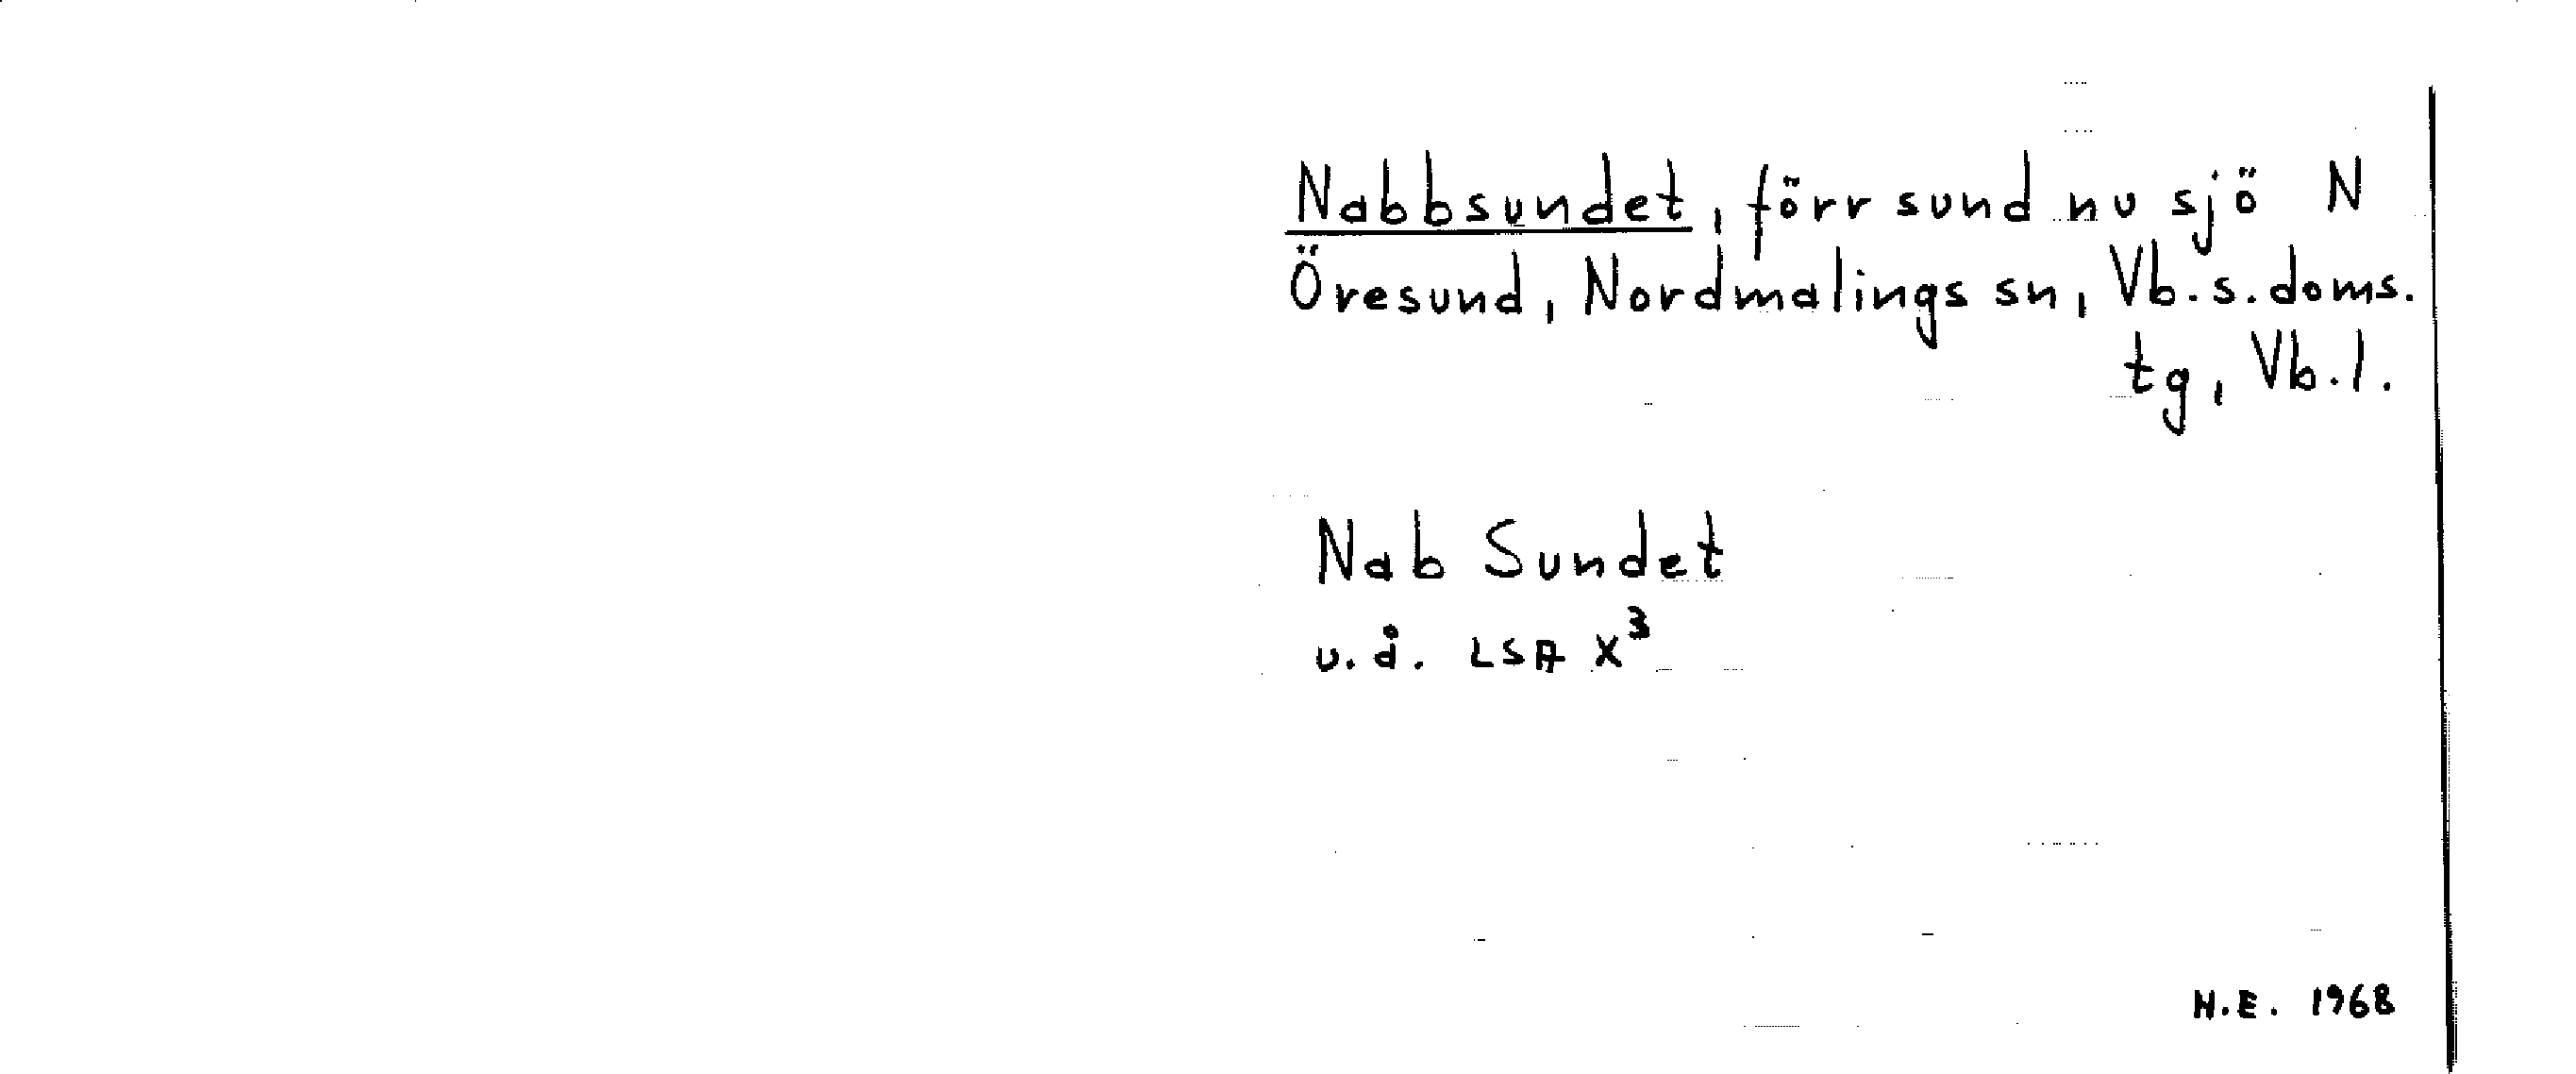 Nabbsundet, förr sund nu sjö N
Öresund, Nordmalings sn, Vb.s.doms.
tg, Vb.l.
Nab Sundet
u.å. LSA X³
H.E. 1968